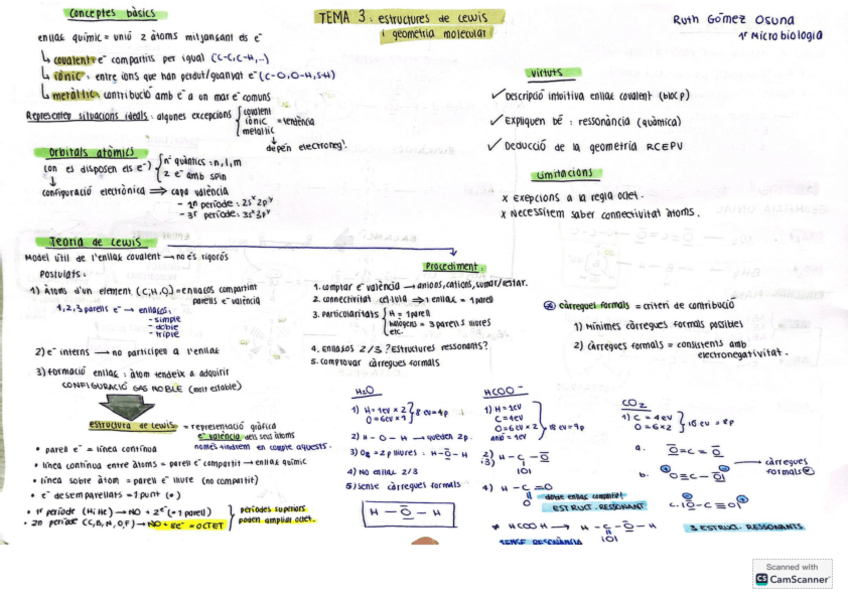 Conceptes bàsics
TEMA 3: estructures de Lewis
i geometria molecular
Ruth Gómez Osuna
1r Microbiologia
enllaç químic = unió 2 àtoms mitjançant els e⁻
↳ covalent: e⁻ compartits per igual (C-C, C-H,...)
↳ iònic: entre ions que han perdut/guanyat e⁻ (C-O, O-H, S-H)
↳ metàl·lic: contribució amb e⁻ a un mar e⁻ comuns
Representen situacions ideals: algunes excepcions { covalent
iònic
metàl·lic
= valència
↓
depèn electroneg!
virtuts
✓ Descripció intuitiva enllaç covalent (bloc p)
✓ Expliquen bé: ressonància (química)
✓ Deducció de la geometria RCEPV
Limitacions
x Exepcions a la regla octet.
x Necessitem saber connectivitat àtoms.
Orbitals atòmics
(on es disposen els e⁻) { nº quàntics: n, l, m
2 e⁻ amb spin
↓
configuració electrònica ⟹ capa valència
- 2n període: 2sˣ 2pʸ
- 3r període: 3sˣ 3pʸ
Teoria de Lewis
Model útil de l'enllaç covalent → no és rigorós
Postulats:
1) Àtoms d'un element (C, H, O) = enllaços compartint
parells e⁻ valència
1, 2, 3 parells e⁻ → enllaços:
- simple
- doble
- triple
2) e⁻ interns → no participen a l'enllaç
3) formació enllaç: àtom tendeix a adquirir
CONFIGURACIÓ GAS NOBLE (més estable)
estructura de Lewis = representació gràfica
e⁻ valència dels seus àtoms
només tindrem en compte aquests.
• parell e⁻ = línea contínua
• línea contínua entre àtoms = parell e⁻ compartit → enllaç químic
• línea sobre àtom = parell e⁻ lliure (no compartit)
• e⁻ desemparellats = 1 punt (•)
• 1r període (H i He) → NO + 2e⁻ (= 1 parell)
• 2n període (C, B, N, O, F) → NO + 8e⁻ = OCTET
} períodes superiors
poden ampliar octet.
Procediment:
1. comptar e⁻ valència → anions, cations, sumar/restar.
2. connectivitat cèl·lula ⟹ 1 enllaç = 1 parell
3. particularitats { H = 1 parell
halògens = 3 parells lliures
etc.
4. enllaços 2/3? estructures ressonants?
5. comprovar càrregues formals
càrregues formals = criteri de contribució
1) Mínimes càrregues formals possibles
2) càrregues formals = consistents amb
electronegativitat.
H₂O
1) H = 1ev x 2
O = 6ev x 1 } 8 ev = 4p
2) H - O - H → queden 2p.
3) O₈ = 2p lliures: H - O̲̅ - H
4) No enllaç 2/3
5) sense càrregues formals
H - O̲̅ - H
HCOO⁻
1) H = 1ev
C = 4ev
O = 6ev x 2
anió = 1ev
} 18 ev = 9p
2)
3) H - C - O̲̅
||
|O|
4) H - C = O
|
O
doble enllaç compartit
ESTRUCT. RESSONANT
* HCOOH → H - C - O̲̅ - H
||
|O|
SENSE RESSONÀNCIA
CO₂
1) C = 4ev
O = 6 x 2 } 16 ev = 8p
a. O̲̅ = C = O̲̅
b. O ≡ C - O̲̅|
→ càrregues
formals
c. |O̲̅ - C ≡ O|
3 ESTRUCT. RESSONANTS
Scanned with
CS CamScanner